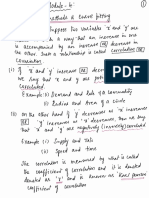 Module - 4:
methods & Curve fitting
Suppose two variables 'x' and 'y' are
in such a way that an increase in one
is accompanied by an increase or decrease in
other. Such a relation is called correlation or
Correlation
(i) If 'x' and 'y' increase or decrease both
we say that x and y are positively
correlated
Example: 1) Demand and Rate of Commodity
2) Radius and Area of a Circle
(ii) On the other hand if 'y' decrease as 'x' increases
or 'y' increase as 'x' decreases, then we say
that 'x' and 'y' are negatively (inversely) correlated
Example: 1) Supply and rate
2) Speed and time
The correlation is measured by what is called
the coefficient of correlation and it is
denoted by 'r' and is known as Karl Pearson's
coefficient of correlation